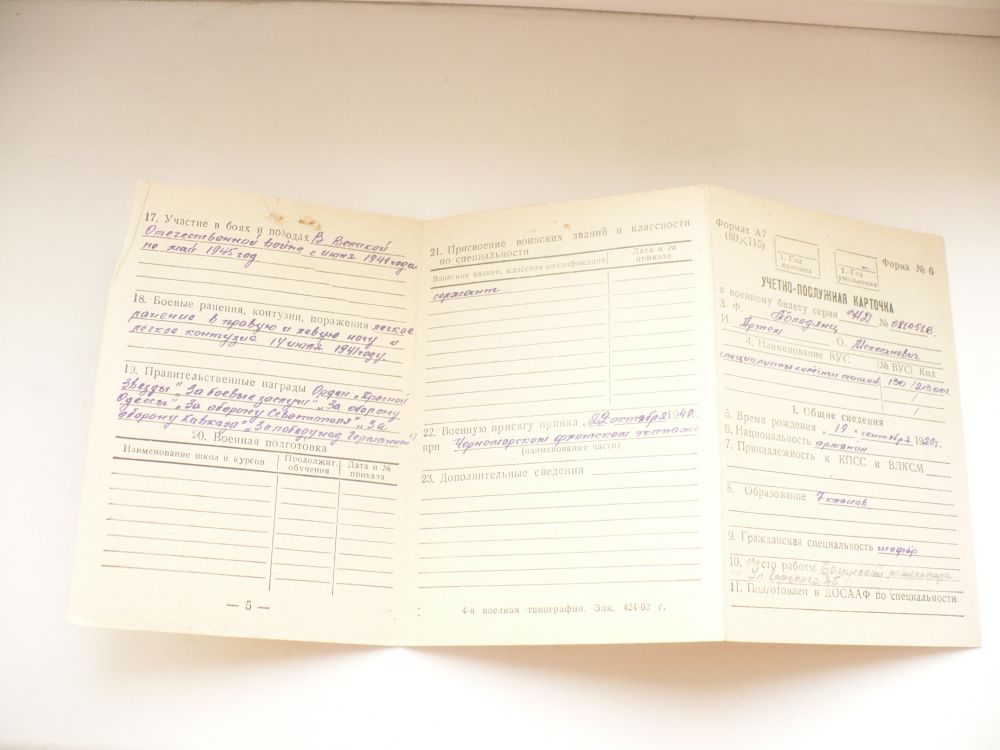 17. Участие в боях и походах В Великой
Отечественной войне с июня 1941 года
по май 1945 год
18. Боевые ранения, контузии, поражения легкое
ранение в правую и левую ногу и
легкое контузия 14 июля 1941 году.
19. Правительственные награды Орден „Красной
Звезды" „За боевые заслуги", „За оборону
Одессы", „За оборону Севастополя", „За
оборону Кавказа" „За победу над Германией"
20. Военная подготовка
Наименование школ и курсов
Продолжит. обучения
Дата и № приказа
— 5 —
21. Присвоение воинских званий и классности
по специальности
Воинское звание, классная квалификация
Дата и № приказа
сержант
22. Военную присягу принял „22" октября 1940 г.
при Черноморском флотском экипаже
(наименование части)
23. Дополнительные сведения
4-я военная типография. Зак. 424-62 г.
Формат А7
(80×115)
1. Год
призыва
2. Год
увольнения
Форма № 6
УЧЕТНО-ПОСЛУЖНАЯ КАРТОЧКА
к военному билету серии № 
3. Ф.
И. Артем О.
4. Наименование ВУС
№ ВУС
Код
специалисты 130
I. Общие сведения
5. Время рождения „19" сентября 1920 г.
6. Национальность армянин
7. Принадлежность к КПСС и ВЛКСМ
8. Образование 7 классов
9. Гражданская специальность шофёр
10. Место работы
ул. Горького 85
11. Подготовлен в ДОСААФ по специальности